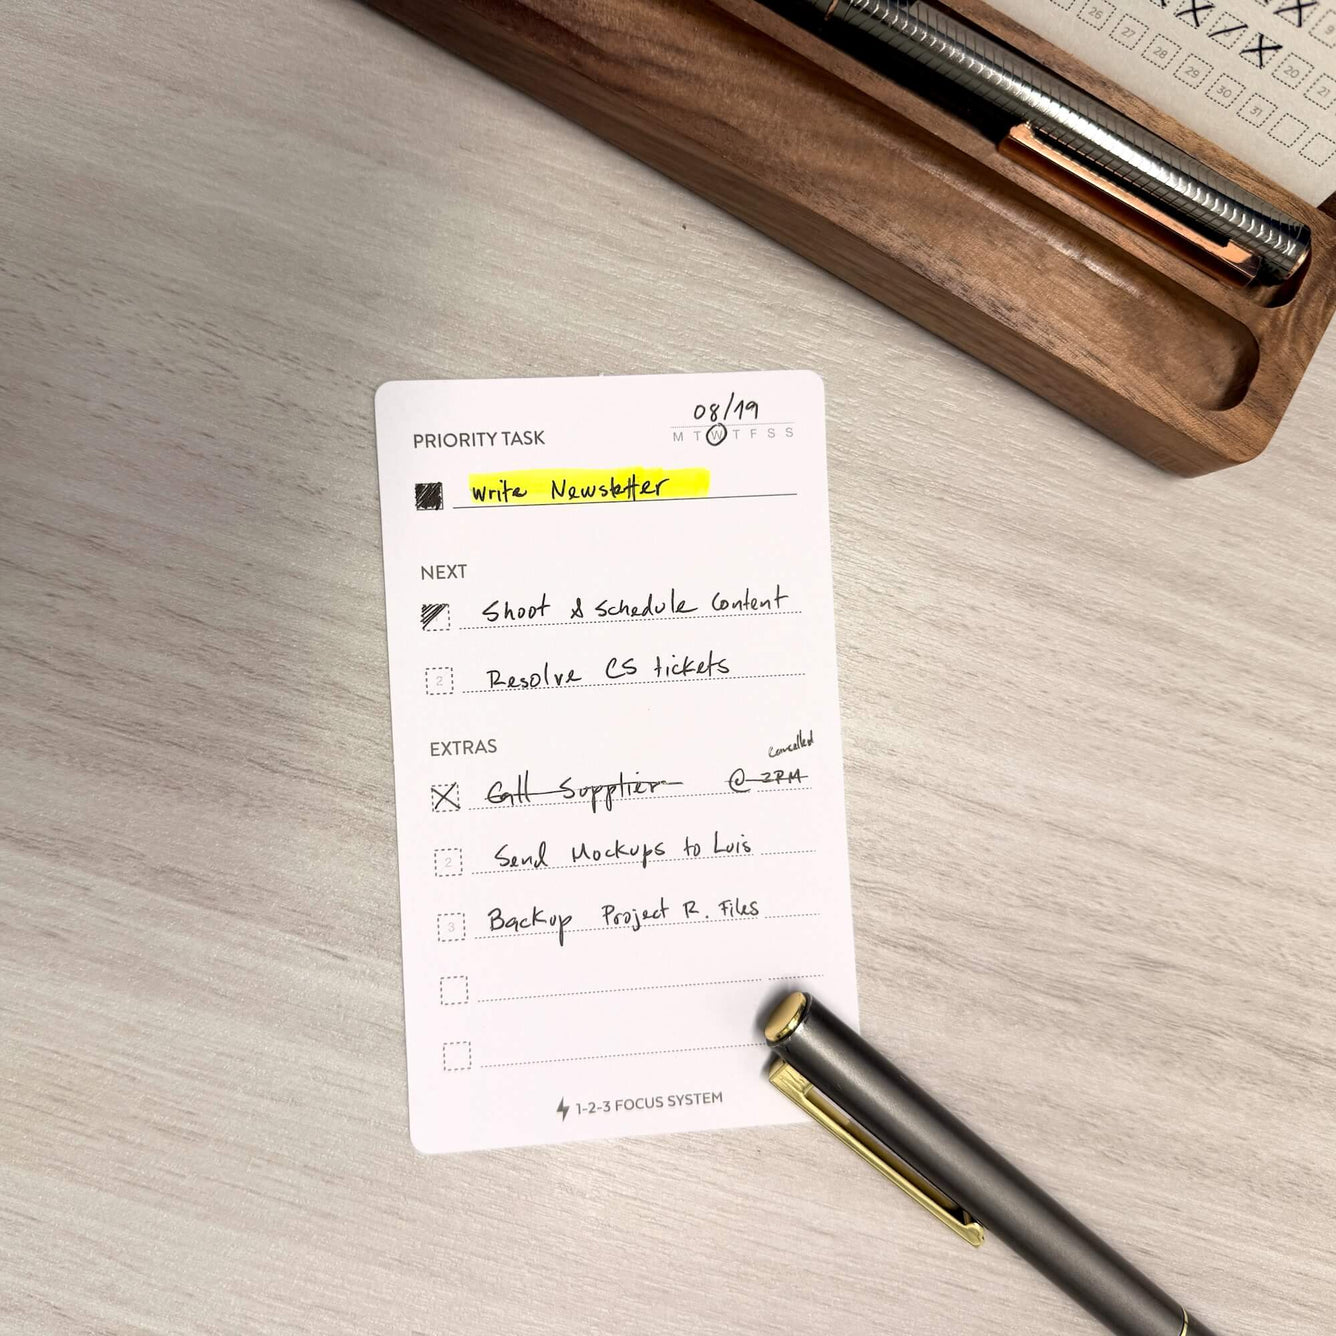 26 X / X 20 21
27 28 29 30 31
08/19
PRIORITY TASK
M T W T F S S
Write Newsletter
NEXT
Shoot & Schedule Content
2 Resolve CS tickets
EXTRAS
cancelled
Call Supplier @ 2PM
2 Send Mockups to Luis
3 Backup Project R. Files
1-2-3 FOCUS SYSTEM